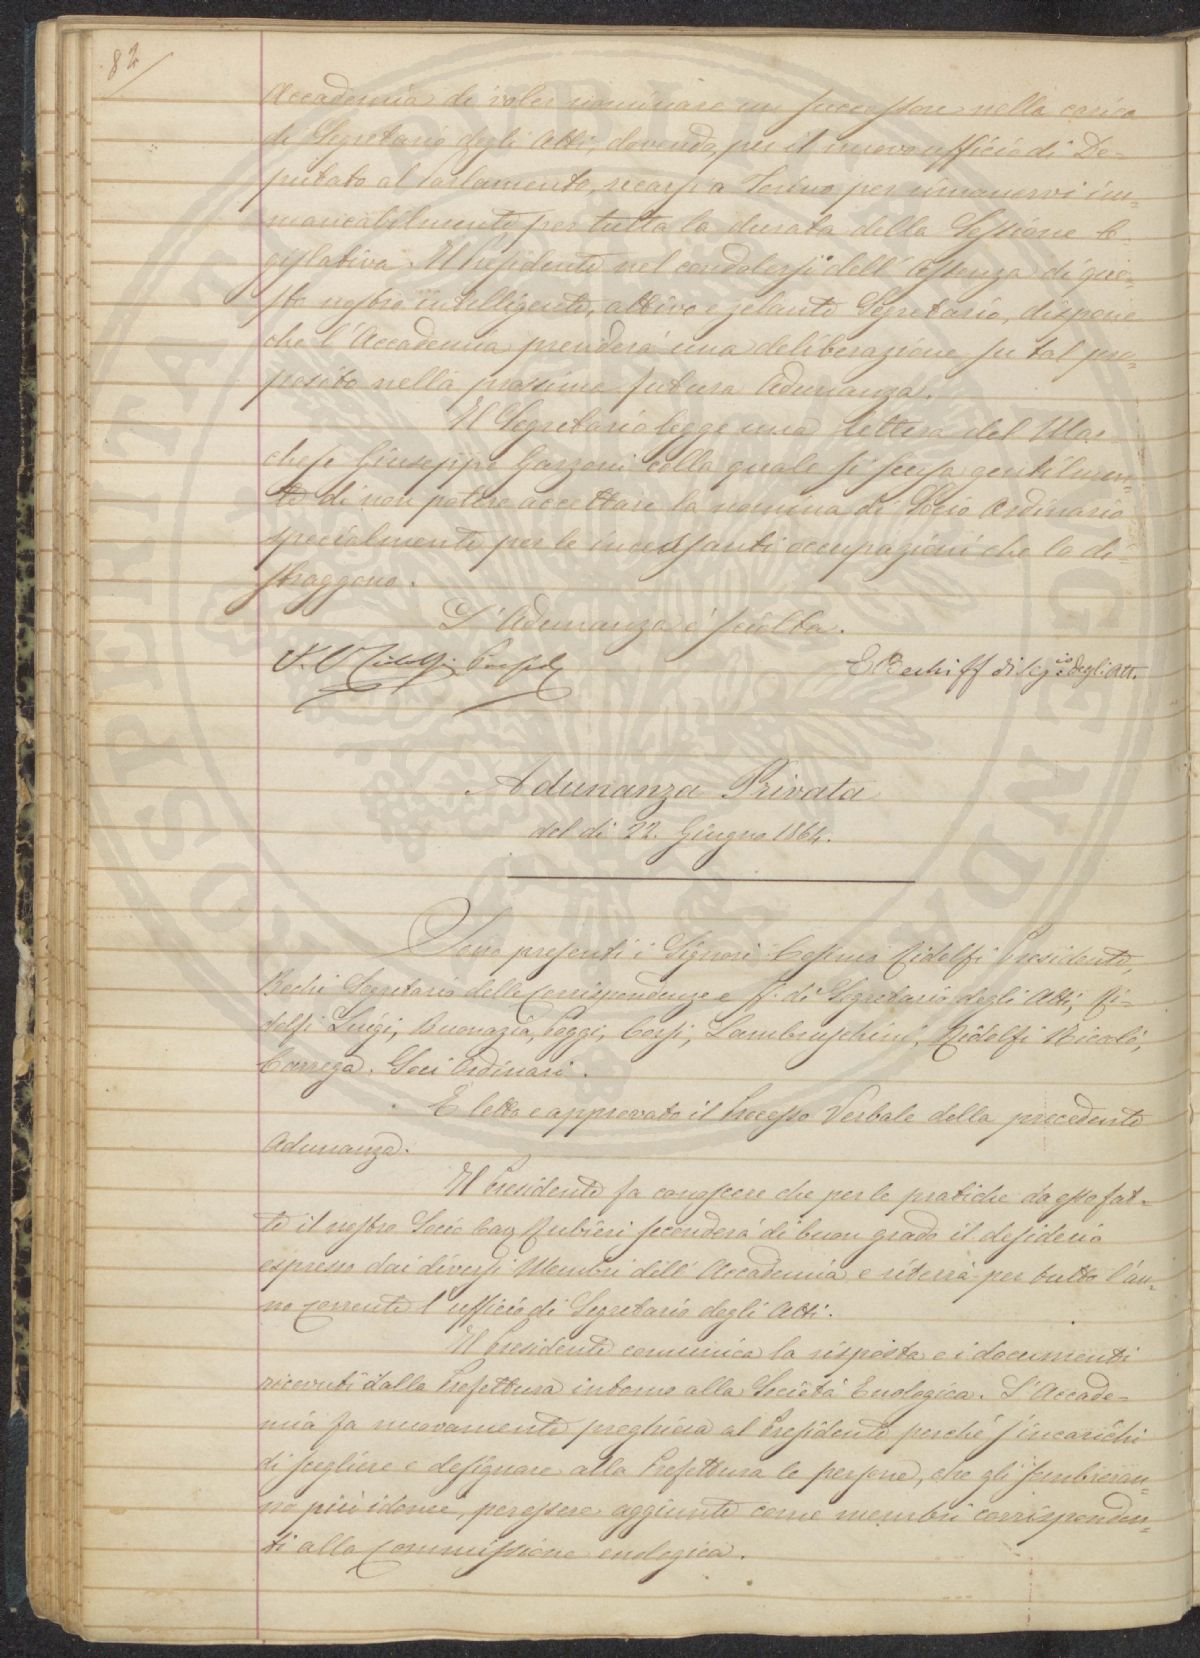 82
Accademia di voler nominare un successore nella carica
di Segretario degli Atti, dovendo, per il nuovo ufficio di De=
putato al Parlamento, recarsi a Torino per rimanervi im=
mancabilmente per tutta la durata della Sessione le
gislativa. Il Presidente nel condolersi dell'assenza di que=
sto nostro intelligente, attivo e zelante Segretario, dispone
che l'Accademia prenderà una deliberazione su tal pro=
posito nella prossima futura Adunanza.
Il Segretario legge una lettera del Mar=
chese Giuseppe Garzoni colla quale si scusa gentilmen=
te di non potere accettare la nomina di Socio Ordinario
specialmente per le incessanti occupazioni che lo di=
straggono.
L'Adunanza è sciolta.
C. Ridolfi Presid.
E Bechi ff di Seg.io degli Att.
Adunanza Privata
del dì 22. Giugno 1864.
Sono presenti i Signori Cosimo Ridolfi Presidente,
Bechi Segretario delle Corrispondenze e f. di Segretario degli Atti, Ri=
dolfi Luigi, Buonazia, Poggi, Corsi, Lambruschini, Ridolfi Niccolò,
Carrega. Soci Ordinari.
È letto e approvato il Processo Verbale della precedente
Adunanza.
Il Presidente fa conoscere che per le pratiche da esso fat=
te il nostro Socio Cav Rubieri seconderà di buon grado il desiderio
espresso dai diversi Membri dell'Accademia e riterrà per tutto l'an=
no corrente l'ufficio di Segretario degli Atti.
Il Presidente comunica la risposta e i documenti
ricevuti dalla Prefettura intorno alla Società Enologica. L'Accade=
mia fa nuovamente preghiera al Presidente perché s'incarichi
di scegliere e designare alla Prefettura le persone, che gli sembreran=
no più idonee, per essere aggiunte come membri corrisponden=
ti alla Commissione enologica.